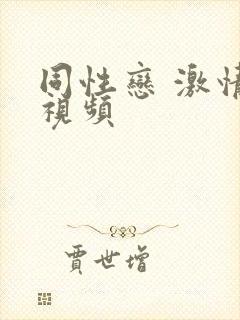 同性戀 激情
視頻
賈世增